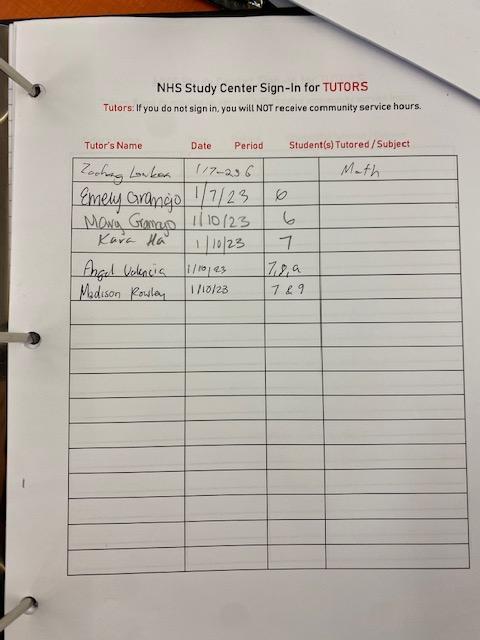 NHS Study Center Sign-In for TUTORS
Tutors: If you do not sign in, you will NOT receive community service hours.
Tutor's Name Date Period Student(s) Tutored / Subject
Math
Emely Granajo 1/7/23 6
Mary 1/10/23 6
Kara Ha 1/10/23 7
Angel Valencia 1/10/23 7,8,9
Madison Rowley 1/10/23 7 & 9